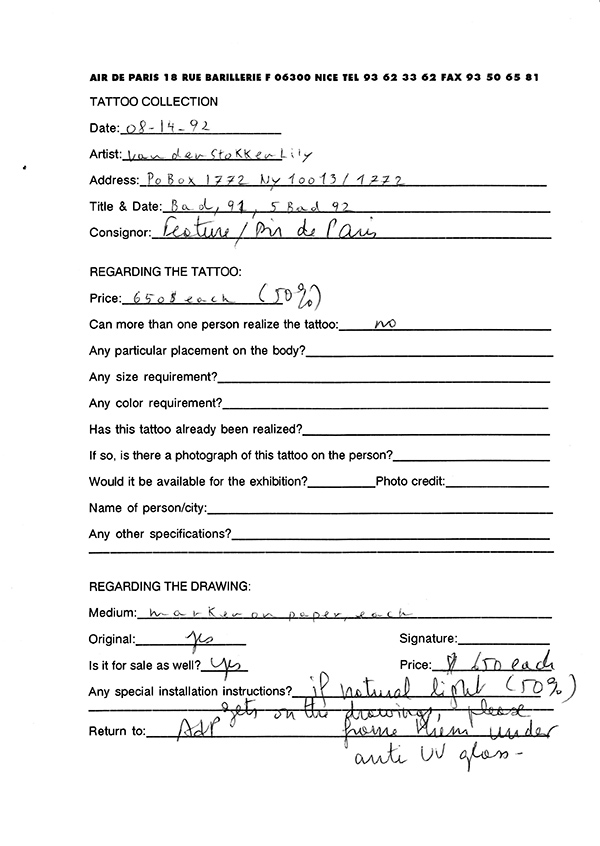 AIR DE PARIS 18 RUE BARILLERIE F 06300 NICE TEL 93 62 33 62 FAX 93 50 65 81
TATTOO COLLECTION
Date: 08-14-92
Artist: van der Stokker Lily
Address: Po Box 1772 NY 10013/1772
Title & Date: Bad, 91, 5 Bad 92
Consignor: Feature / Air de Paris
REGARDING THE TATTOO:
Price: 650$ each (50%)
Can more than one person realize the tattoo: no
Any particular placement on the body?
Any size requirement?
Any color requirement?
Has this tattoo already been realized?
If so, is there a photograph of this tattoo on the person?
Would it be available for the exhibition? Photo credit:
Name of person/city:
Any other specifications?
REGARDING THE DRAWING:
Medium: marker on paper, each
Original: yes Signature:
Is it for sale as well? yes Price: $ 650 each
Any special installation instructions? if natural light (50%)
gets on the drawings, please
Return to: AdP frame them under
anti UV glass -